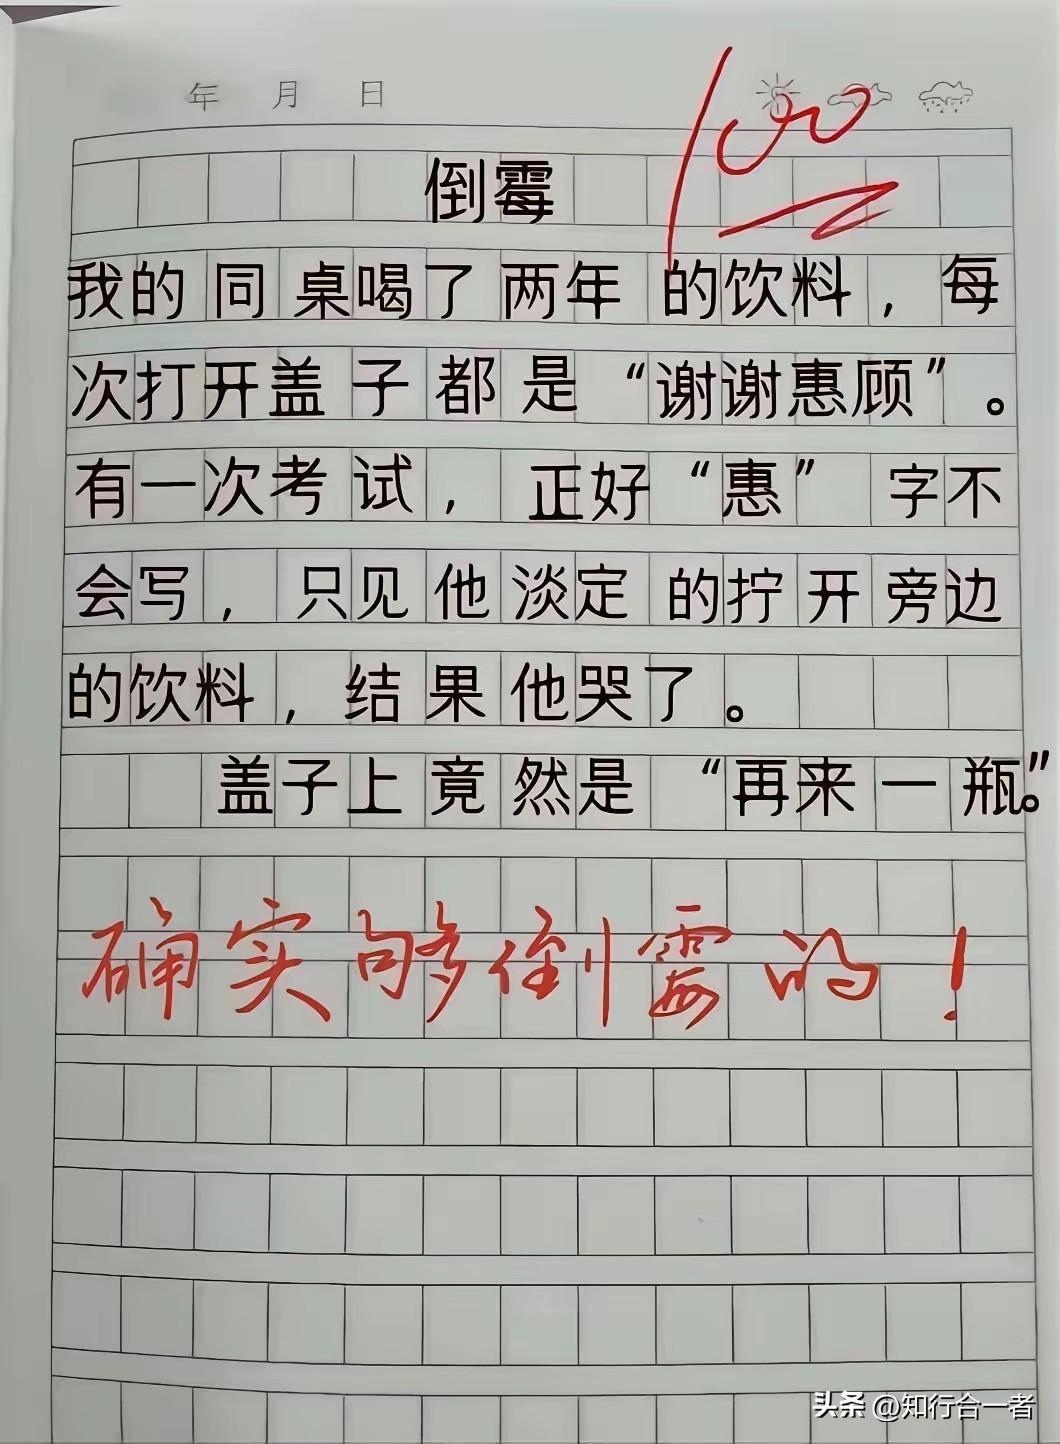 年 月 日
100
倒霉
我的同桌喝了两年的饮料，每
次打开盖子都是“谢谢惠顾”。
有一次考试，正好“惠”字不
会写，只见他淡定的拧开旁边
的饮料，结果他哭了。
盖子上竟然是“再来一瓶。”
确实够倒霉的！
头条 @知行合一者